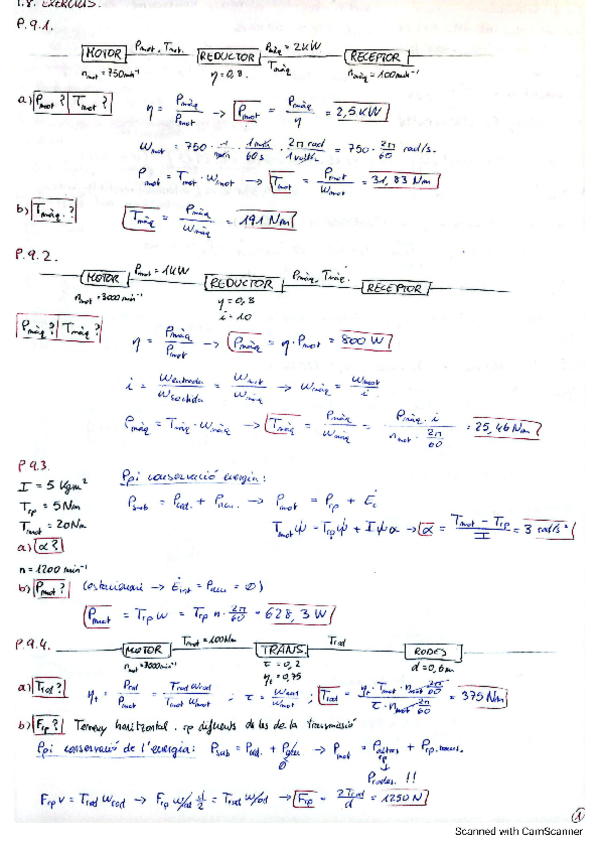 1.8. EXERCICIS.
P.9.1.
MOTOR Pmot, Tmot. REDUCTOR Pmàq = 2KW RECEPTOR
nmot = 750 min⁻¹ η = 0,8. Tmàq nmàq = 100 min⁻¹
a) Pmot? Tmot? η = Pmàq / Pmot → Pmot = Pmàq / η = 2,5 KW
ωmot = 750 · 1/min · 1min/60s · 2π rad/1volta = 750 · 2π/60 rad/s.
Pmot = Tmot · ωmot → Tmot = Pmot / ωmot = 31,83 Nm
b) Tmàq.? Tmàq = Pmàq / ωmàq = 191 Nm
P.9.2.
MOTOR Pmot = 1KW REDUCTOR Pmàq, Tmàq. RECEPTOR
nmot = 3000 min⁻¹ η = 0,8
i = 10
Pmàq? Tmàq? η = Pmàq / Pmot → Pmàq = η · Pmot = 800 W
i = ωentrada / ωsortida = ωmot / ωmàq → ωmàq = ωmot / i
Pmàq = Tmàq · ωmàq → Tmàq = Pmàq / ωmàq = Pmàq · i / nmot · 2π/60 = 25,46 Nm
P 9.3.
I = 5 Kgm² Ppi conservació energia:
Trp = 5 Nm Psub = Pced. + Pacu. → Pmot = Prp + Ėc
Tmot = 20 Nm Tmot ω = Trp ω + I ω α → α = Tmot − Trp / I = 3 rad/s²
a) α?
n = 1200 min⁻¹
b) Pmot? (estacionari → Ėint = Pacu = 0)
Pmot = Trp ω = Trp n · 2π/60 = 628,3 W
P.9.4.
MOTOR Tmot = 100 Nm TRANS. Trod RODES
nmot = 3000 min⁻¹ τ = 0,2 d = 0,6m
ηt = 0,75
a) Trod? ηt = Prod / Pmot = Trod ωrod / Tmot ωmot ; τ = ωrod / ωmot ; Trod = ηt · Tmot · nmot 2π/60 / τ · nmot 2π/60 = 375 Nm
b) Frp? Terreny horitzontal. rp diferents de les de la transmissió
Ppi conservació de l'energia: Psub = Pced. + Pacu → Pmot = Paltres rp + Prp. trans.
0 Prodes. !!
Frp v = Trod ωrod → Frp ωrod d/2 = Trod ωrod → Frp = 2Trod / d = 1250 N
1
Scanned with CamScanner